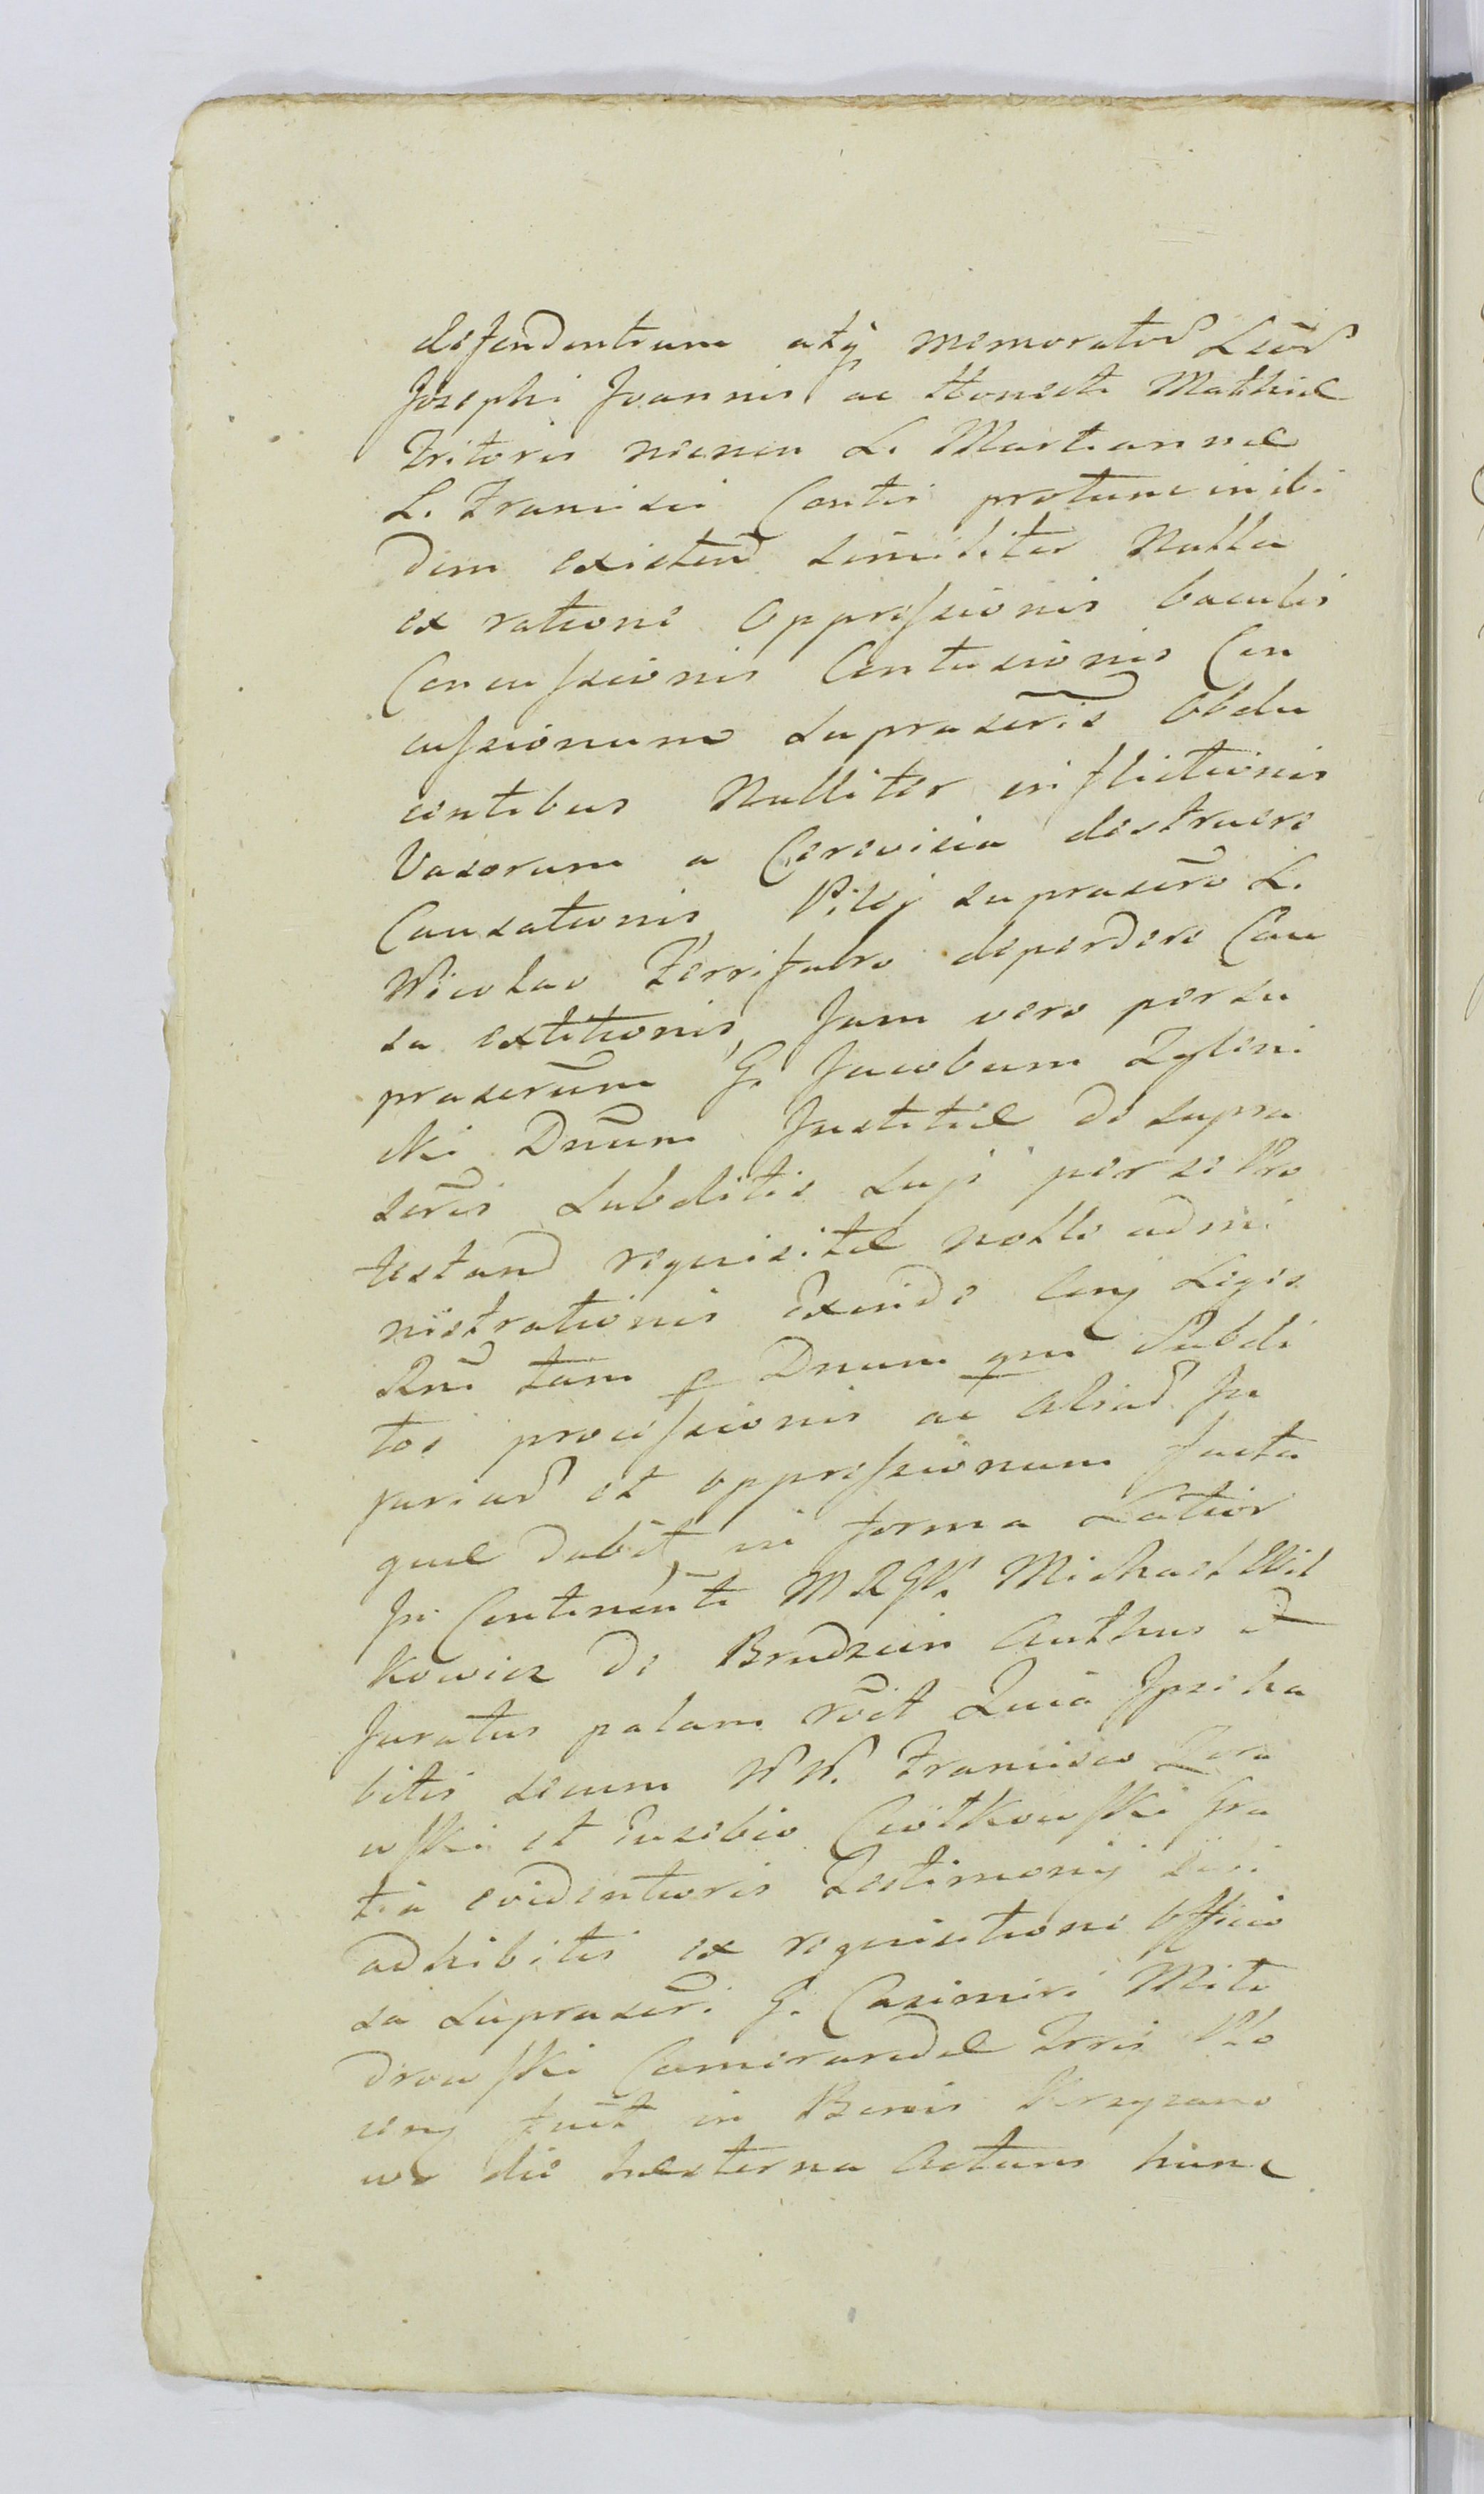 defendentium atq̀ memorator Laōr
Josephi Joannis ac Honesti Mathiæ
Tritoris necnon L. Martiannæ
L. Francisci Contis protunc inibi
dem existen similiter Nulla
ex ratione oppreſsionis baculis
Concuſsionis Contusionis Con
cuſsionum suprascris obdu
centibus Nulliter inflictionis
Vasorum a Cerevisia destruere
Causationis, Pilej suprascr̃o L.
Nicolao Ferrifabro deperdere Cau
sa extitionis, Jam vero persu
prascr̃um G. Jacobum Zylin
ski Dnum Justitiæ de supra
scr̃is Subditis Suji per se Pro
testan requisitæ nolle admi
nistrationis Exinde Cuj Legis
Rni tam p Dnum qm Subdi
tos proceſsionis ac aliar In
juriar et oppreſsionum facta
quæ dabit, in forma Latiori
In Continenti MRGV. Michael Wit
kowicz de Brudzein Authus et
Juratus palam rōit Quia Ipse ha
bitis secum NN. Francisco Zora
wſki et Eusebio Ciołkowſki gra
tia evidentioris Testimonij sibi
adhibitis ex requisitione officio
sa Suprascr̃i G. Casimiri Mito
drowſki Cameraridæ Trris Plo
cen fuit in Bonis Krzyzano
wo die hesterna Actum hunc